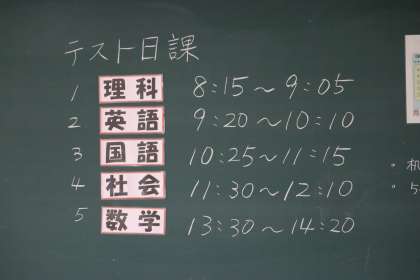 テスト日課
1 理科 8:15〜9:05
2 英語 9:20〜10:10
3 国語 10:25〜11:15
4 社会 11:30〜12:10
5 数学 13:30〜14:20
・机
・5